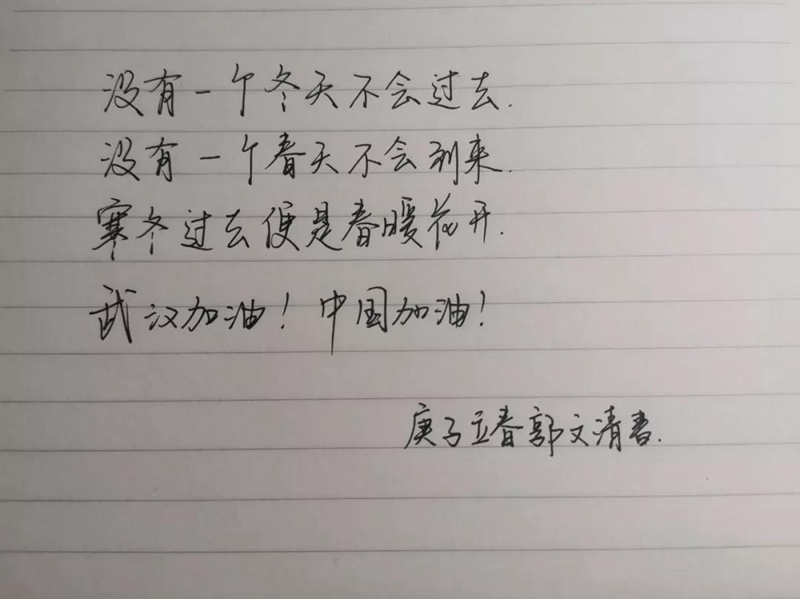 没有一个冬天不会过去.
没有一个春天不会到来.
寒冬过去便是春暖花开.
武汉加油！中国加油！
庚子立春郭文清书.